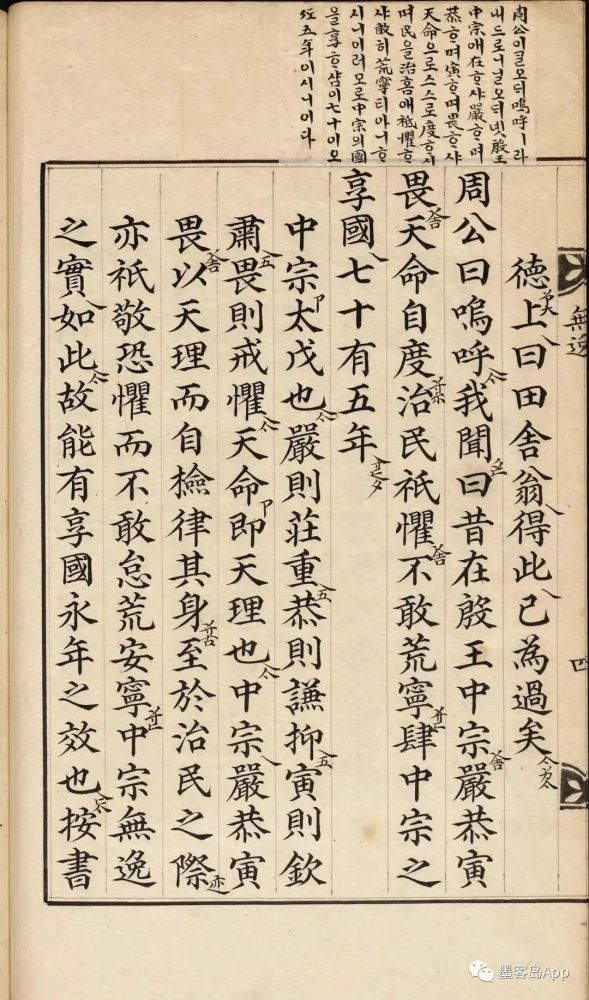 周公이ᄀᆞᆯ오ᄃᆡ嗚呼ㅣ라
내드로니ᄀᆞᆯ오ᄃᆡ녯殷王
中宗애在ᄒᆞ샤嚴ᄒᆞ며
恭ᄒᆞ며寅ᄒᆞ며畏ᄒᆞ샤
天命으로스스로度ᄒᆞ시
며民을治홈애祗懼ᄒᆞ
샤敢히荒寧티아니ᄒᆞ
시니이러모로中宗의國
을享ᄒᆞ샴이七十이오
五年이시니이다
無逸
四
德上曰田舎翁得此已為過矣
周公曰嗚呼我聞曰昔在殷王中宗嚴恭寅
畏天命自度治民祗懼不敢荒寧肆中宗之
享國七十有五年
中宗太戊也嚴則莊重恭則謙抑寅則欽
肅畏則戒懼天命即天理也中宗嚴恭寅
畏以天理而自檢律其身至於治民之際
亦祗敬恐懼而不敢怠荒安寧中宗無逸
之實如此故能有享國永年之效也按書
墨客岛App